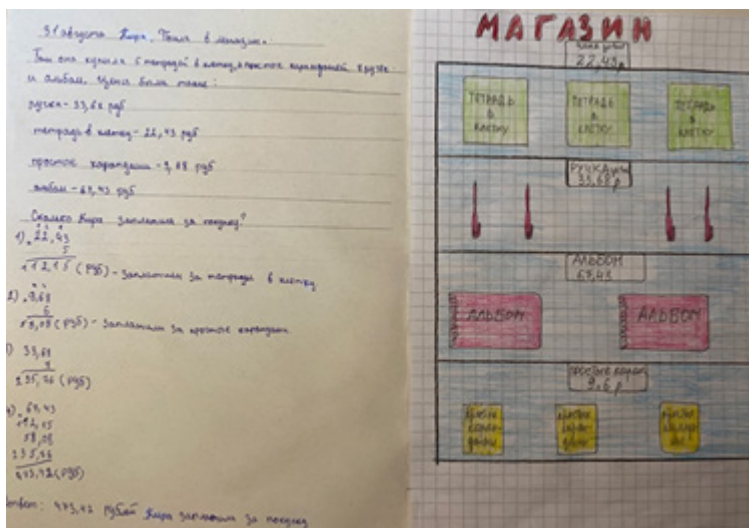 31 августа Кира. Пошла в магазин.
Там она купила 5 тетрадей в клетку, 6 простых карандашей, ручек
и альбом. Цена была такие:
ручка - 33,68 руб
тетрадь в клетку - 22,43 руб
простые карандаши - 9,68 руб
альбом - 67,43 руб
Сколько Кира заплатила за покупку?
1) 22,43
5
112,15 (руб) - заплатили за тетради в клетку
2) 9,68
6
58,08 (руб) - заплатили за простые карандаши
33,68
235,76 (руб)
67,43
112,15
58,08
235,76
473,42 (руб)
Ответ: 473,42 рублей Кира заплатила за покупку
МАГАЗИН
22,43 р
ТЕТРАДЬ В КЛЕТКУ
ТЕТРАДЬ В КЛЕТКУ
ТЕТРАДЬ В КЛЕТКУ
РУЧКА
33,68 р
АЛЬБОМ
67,43
АЛЬБОМ
АЛЬБОМ
простые каран
9,6 р